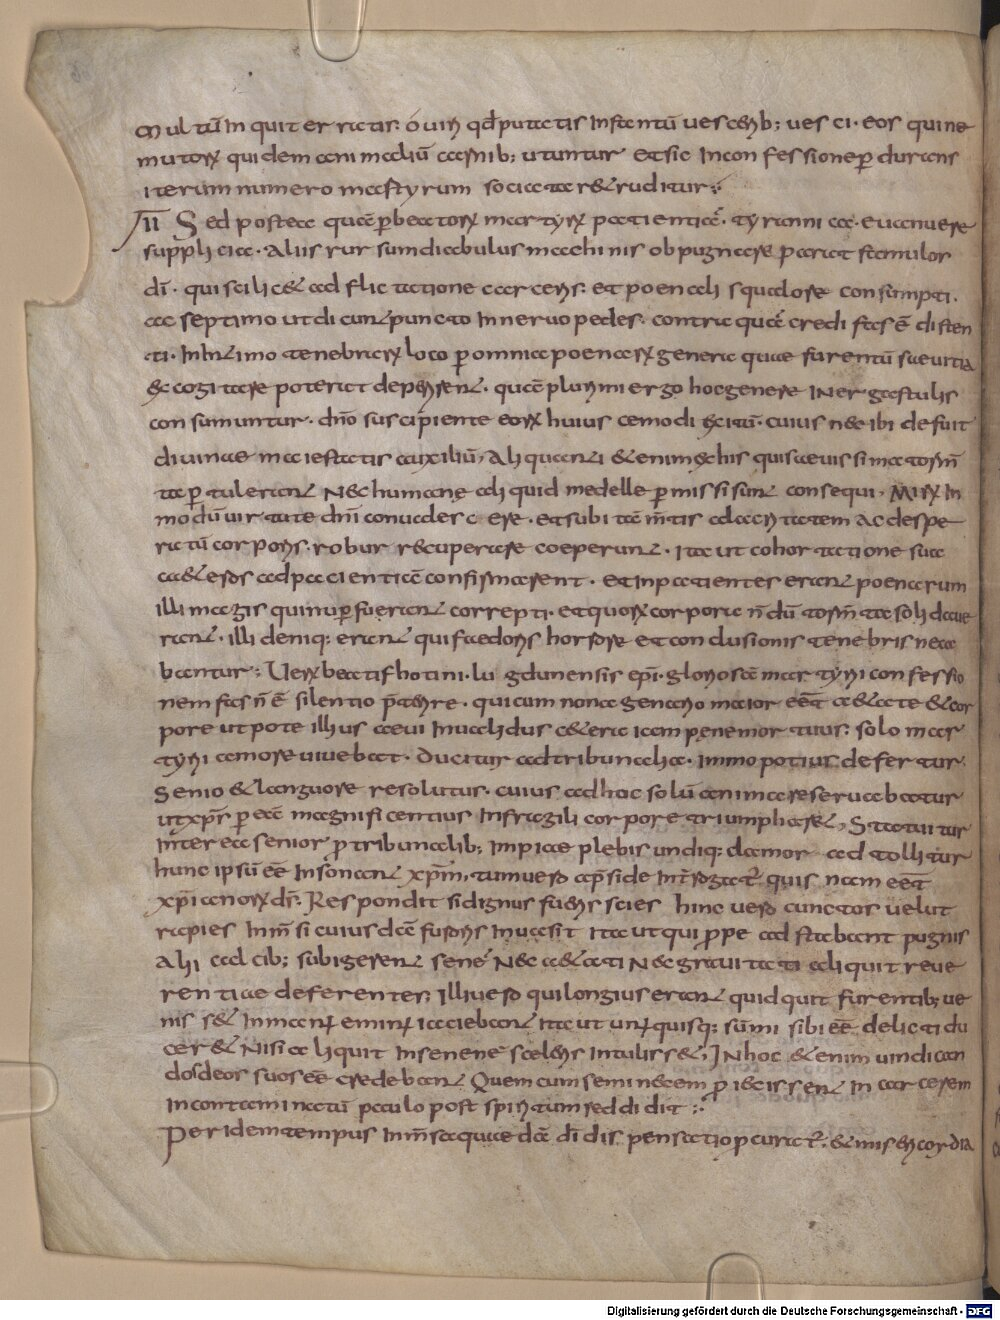 Multū inquit erratis o viri qd putatis infantū vescenib; vesci eos qui ne
mutorꝝ quidem animaliū carnib; utuntur et sic in confessione pdurans
iterum numero martyrum sociata & redditur
II Sed postea quā p beatorꝝ martyrꝝ patientiā tyranni ca evanuere
supplicia aliis rursum diabulus machinis obpugnare parat famulor
di qui scilic& adflictatione carceris et poenali squalore consumpti
ac septimo ut dicunt puncto in nervo pedes contra quā credi fas ē disten
ti in intimo tenebrarꝝ loco p omnia poenarꝝ genera quae furentū saevitia
& cogitare poterat depirent quā plurimi ergo hoc genere in ergastulis
consumuntur dño suscipiente eorꝝ huiuscemodi exitū cuius nec ibi defuit
divinae maiestatis auxiliū Aliquanti & enim ex his qui saevissima torm̄
ta ptulerant nec humane aliquid medelle pmissi sunt consequi mirꝝ in
modū virtute dñi convalescere et subitā m̄tis alacritatem ac despe
ratū corporis robur recuperare coeperunt ita ut cohortatione sua
ca&eros ad pacientiā confirmarent et inpatienter erant poenarum
illi magis qui nup fuerant correpti et quorꝝ corpora ndū torm̄ta solidave
rant illi deniq; erant qui faedoris horrore et conclusionis tenebris neca
bantur Verꝝ beati fhotini lugdunensis epi gloriosā martyrii confessio
nem fas ñ ē silentio p̄terire qui cum nonagenario maior eēt aetate & cor
pore utpote illius aevi invalidus c&era iam pene mortuus solo mar
tyrii amore vivebat ducitur ad tribunalia immo potius defertur
senio & languore resolutus cuius ad hoc solū anima reservabatur
ut xps p eā magnificentius in fragili corpore triumphar& Statuitur
interea senior p tribunalib; impiae plebis undiq; clamor ad tollitur
hunc ipsū eē insonant xpm tum vero a p̄side int̄rogat quis nam eēt
xpianorꝝ ds Respondit si dignus fueris scies hinc vero cunctos velut
rapies inm̄si cuiusdā furoris invasit ita ut qui ppe adstabant pugnis
alii calcib; subigerent senē nec aetati nec gravitati aliquit reve
rentiae deferentes illi vero qui longius erant quidquit furentib; ve
nis s& in manꝰ eminꝰ iaciebant ita ut unꝰquisq; sūmi sibi eē delicti du
cer& nisi aliquit in senene sceleris intuliss& In hoc & enim vindican
dos deos suos eē credebant Quem cum seminecem piecissent in carcerem
incontaminatū paulo post spiritum reddidit
Per idem tempus inm̄sa quaedā di dispensatio pcurat & misericordia
Digitalisierung gefördert durch die Deutsche Forschungsgemeinschaft - DFG